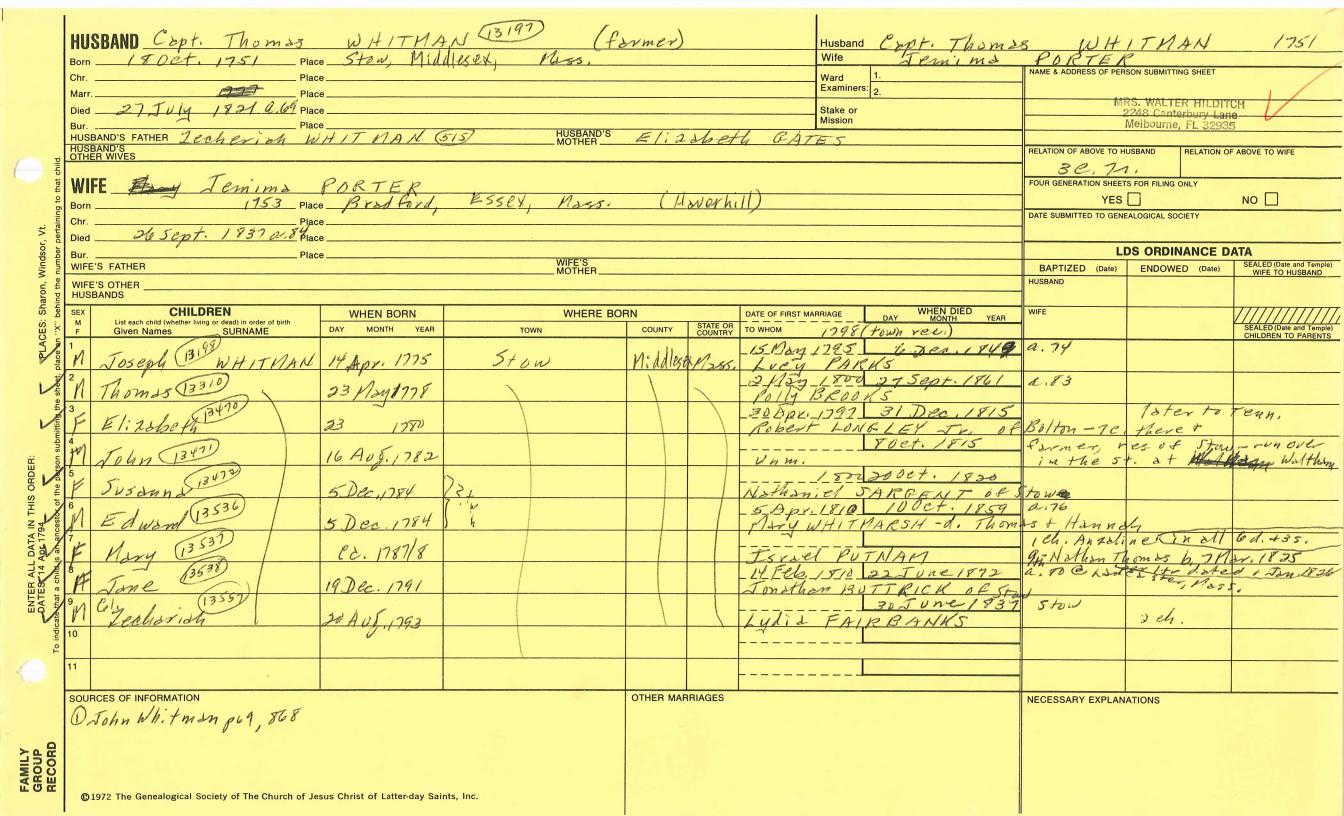 HUSBAND Capt. Thomas WHITMAN 13197 (farmer)
Born 18 Oct. 1751 Place Stow, Middlesex, Mass.
Chr. Place
Marr. Place
Died 27 July 1821 a.69 Place
Bur. Place
HUSBAND'S FATHER Zecheriah WHITMAN 515 HUSBAND'S MOTHER Elizabeth GATES
HUSBAND'S OTHER WIVES
Husband Capt. Thomas WHITMAN 1751
Wife Jemima PORTER
Ward Examiners: 1.
2.
Stake or Mission
NAME & ADDRESS OF PERSON SUBMITTING SHEET
MRS. WALTER HILDITCH
2248 Canterbury Lane
Melbourne, FL 32935
RELATION OF ABOVE TO HUSBAND RELATION OF ABOVE TO WIFE
FOUR GENERATION SHEETS FOR FILING ONLY
YES NO
DATE SUBMITTED TO GENEALOGICAL SOCIETY
WIFE Jemima PORTER
Born 1753 Place Bradford, Essex, Mass. (Haverhill)
Chr. Place
Died 26 Sept. 1837 a.84 Place
Bur. Place
WIFE'S FATHER WIFE'S MOTHER
WIFE'S OTHER HUSBANDS
LDS ORDINANCE DATA
BAPTIZED (Date) ENDOWED (Date) SEALED (Date and Temple) WIFE TO HUSBAND
HUSBAND
WIFE
SEALED (Date and Temple) CHILDREN TO PARENTS
SEX M F CHILDREN WHEN BORN WHERE BORN DATE OF FIRST MARRIAGE WHEN DIED
List each child (whether living or dead) in order of birth
Given Names SURNAME DAY MONTH YEAR TOWN COUNTY STATE OR COUNTRY TO WHOM DAY MONTH YEAR
1798 (town rec.)
1 M Joseph 13198 WHITMAN 14 Apr. 1775 Stow Middlesex Mass. 15 May 1795 6 Dec. 1849 a.74
Lucy PARKS
2 M Thomas 13310 23 May 1778 2 May 1800 27 Sept. 1861 a.83
Polly BROOKS
3 F Elizabeth 13470 23 1780 30 Apr. 1797 31 Dec. 1815 later to Tenn.
Robert LONGLEY Jr. of Bolton - 7c. there &
4 M John 13471 16 Aug. 1782 8 Oct. 1815 farmer, res of Stow - run over
Unm. in the st. at Waltham
5 F Susanna 13472 5 Dec. 1784 1800 20 Oct. 1820
Nathaniel SARGENT of Stow
6 M Edward 13536 5 Dec. 1784 5 Apr. 1810 10 Oct. 1859 a.76
Mary WHITMARSH - d. Thomas & Hannah
7 F Mary 13537 ca. 1787/8 1 ch. Angeline in all 6d. + 3s.
Israel PUTNAM Nathan Thomas b. 7 Mar. 1825
8 F Jane 13538 19 Dec. 1791 14 Feb. 1810 22 June 1872 a.80 @ dated 1 Jan. 1826
Jonathan BUTTRICK of Stow Mass.
9 M Col. Zechariah 13557 20 Aug. 1793 30 June 1837 Stow
Lydia FAIRBANKS 2 ch.
10
11
SOURCES OF INFORMATION OTHER MARRIAGES NECESSARY EXPLANATIONS
① John Whitman p69, 868
©1972 The Genealogical Society of The Church of Jesus Christ of Latter-day Saints, Inc.
FAMILY GROUP RECORD
ENTER ALL DATA IN THIS ORDER:
DATES: 14 Apr 1794
PLACES: Sharon, Windsor, Vt.
To indicate that a child is an ancestor of the person submitting the sheet, place an "X" behind the number pertaining to that child.